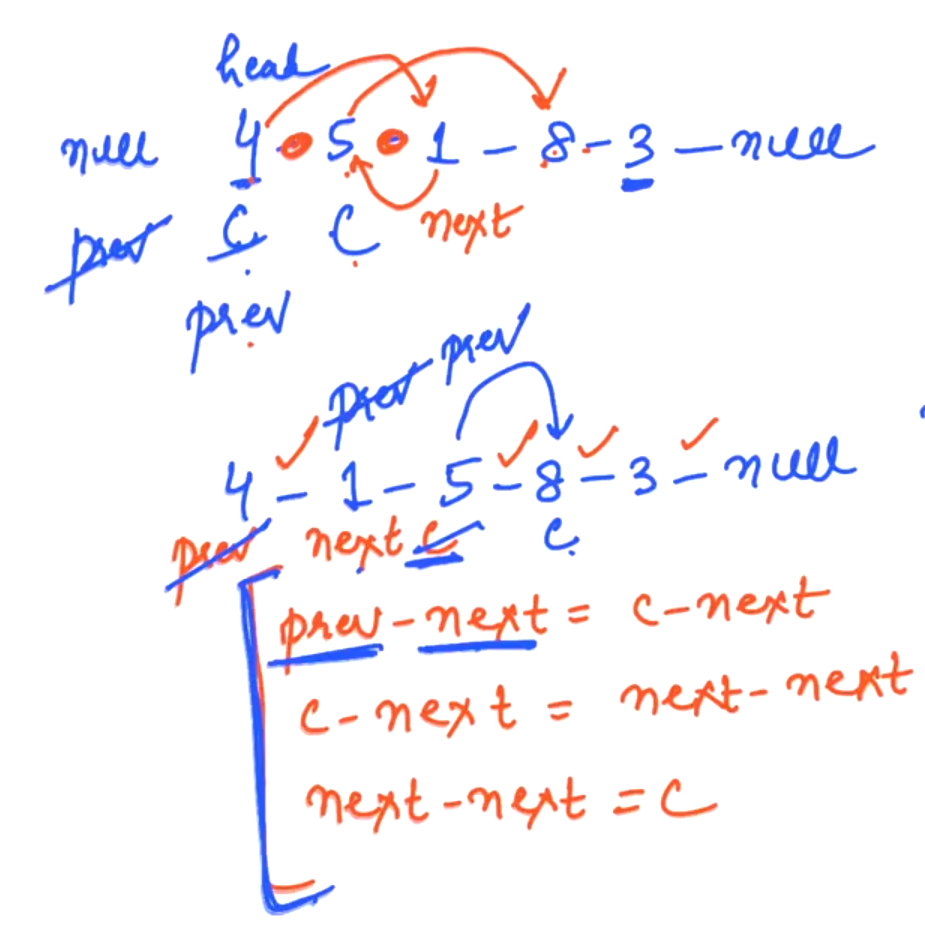 head
null 4 5 1 - 8 - 3 - null
prev C C next
prev
prev prev
4 - 1 - 5 - 8 - 3 - null
prev next C C
prev - next = c - next
c - next = next - next
next - next = c